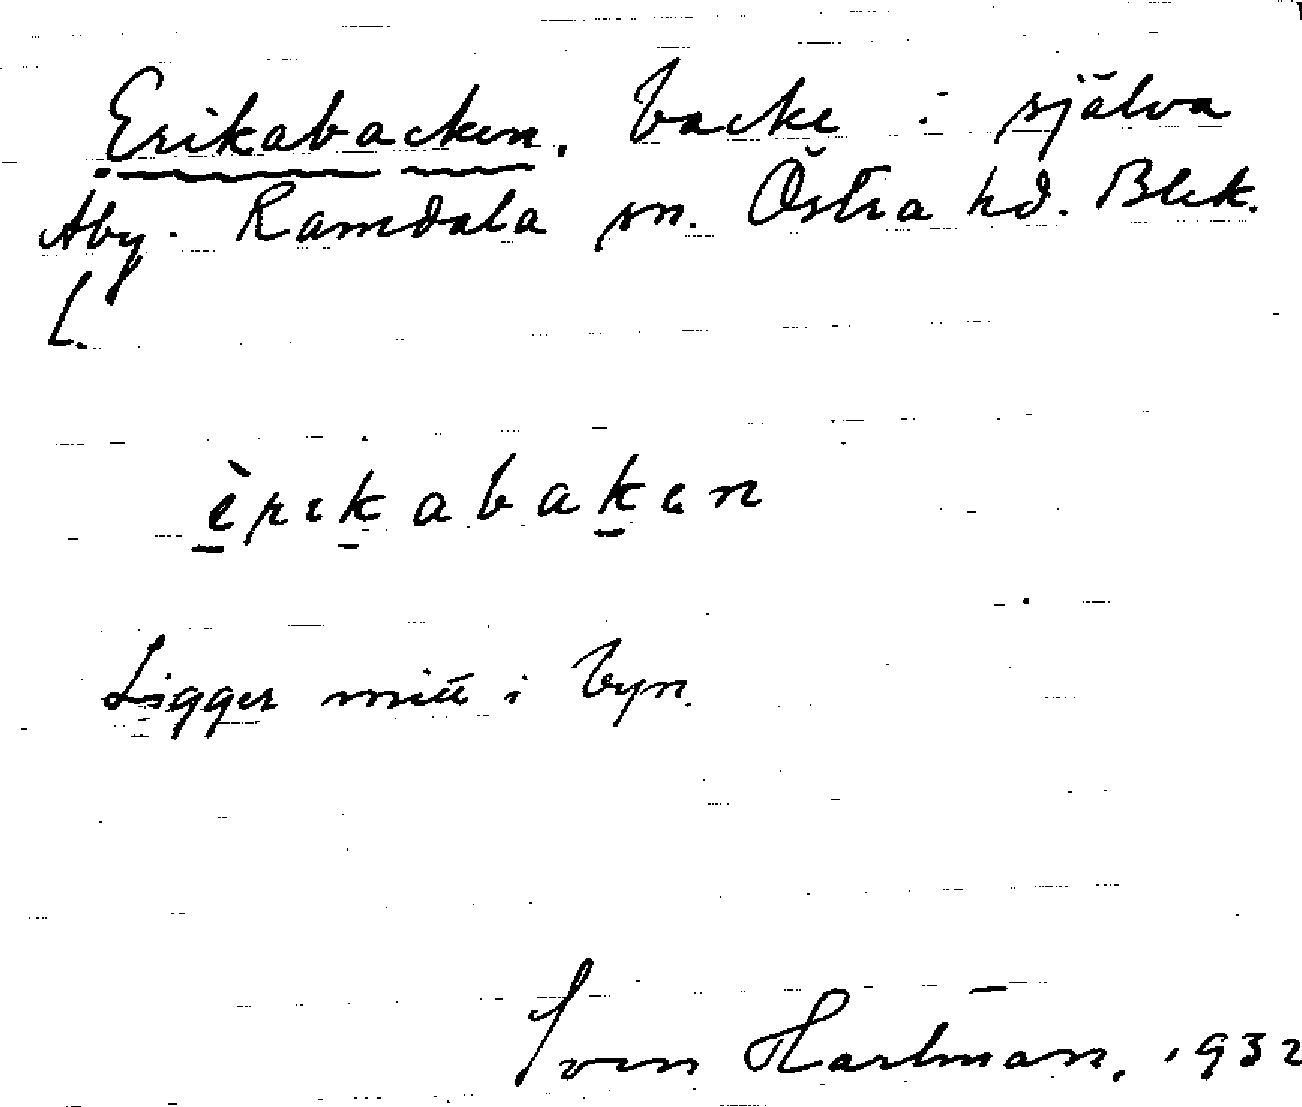 Erikabacken. backe i själva
Åby. Ramdala sn. Östra hd. Blek.
L.
èrikabaken
Ligger mitt i byn.
Sven Hartman. 1932